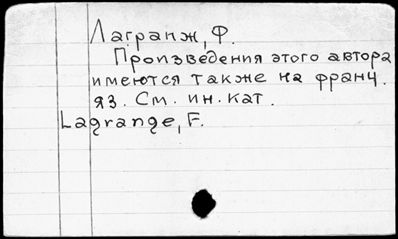 Лагранж, Ф.
Произведения этого автора
имеются также на франц.
яз. См. ин. кат.
Lagrange, F.